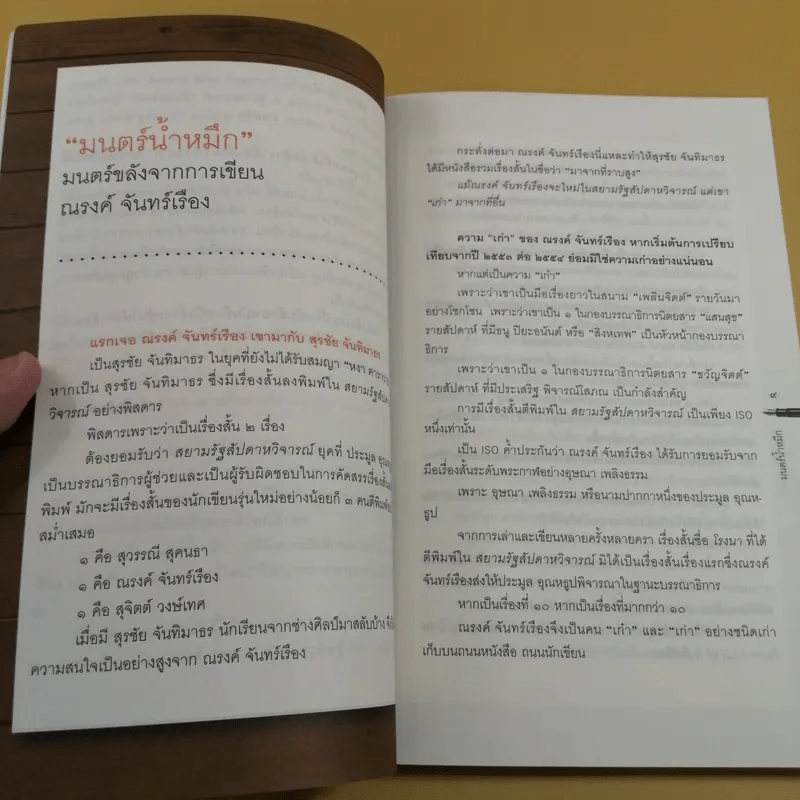 “มนตร์น้ำหมึก”
มนตร์ขลังจากการเขียน
ณรงค์ จันทร์เรือง
แรกเจอ ณรงค์ จันทร์เรือง เขามากับ สุรชัย จันทิมาธร
เป็นสุรชัย จันทิมาธร ในยุคที่ยังไม่ได้รับสมญา “หงา
หากเป็น สุรชัย จันทิมาธร ซึ่งมีเรื่องสั้นลงพิมพ์ใน สยามรัฐสัปดาห
วิจารณ์ อย่างพิสดาร
พิสดารเพราะว่าเป็นเรื่องสั้น ๒ เรื่อง
ต้องยอมรับว่า สยามรัฐสัปดาหวิจารณ์ ยุคที่ ประมูล
เป็นบรรณาธิการผู้ช่วยและเป็นผู้รับผิดชอบในการคัดสรรเรื่องสั้น
พิมพ์ มักจะมีเรื่องสั้นของนักเขียนรุ่นใหม่อย่างน้อยก็ ๓ คนตีพิมพ์
สม่ำเสมอ
๑ คือ สุวรรณี สุคนธา
๑ คือ ณรงค์ จันทร์เรือง
๑ คือ สุจิตต์ วงษ์เทศ
เมื่อมี สุรชัย จันทิมาธร นักเรียนจากช่างศิลป์มาสลับบ้าง
ความสนใจเป็นอย่างสูงจาก ณรงค์ จันทร์เรือง
กระทั่งต่อมา ณรงค์ จันทร์เรืองนี่แหละทำให้สุรชัย จันทิมาธร
ได้มีหนังสือรวมเรื่องสั้นในชื่อว่า “มาจากที่ราบสูง”
แม้ณรงค์ จันทร์เรืองจะใหม่ในสยามรัฐสัปดาหวิจารณ์ แต่เขา
“เก่า” มาจากที่อื่น
ความ “เก่า” ของ ณรงค์ จันทร์เรือง หากเริ่มต้นการเปรียบ
เทียบจากปี ๒๕๕๓ ต่อ ๒๕๕๔ ย่อมมิใช่ความเก่าอย่างแน่นอน
หากแต่เป็นความ “เก๋า”
เพราะว่าเขาเป็นมือเรื่องยาวในสนาม “เพลินจิตต์” รายวันมา
อย่างโชกโชน เพราะว่าเขาเป็น ๑ ในกองบรรณาธิการนิตยสาร “แสนสุข”
รายสัปดาห์ ที่มีธนู ปิยะอนันต์ หรือ “สิงหเทพ” เป็นหัวหน้ากองบรรณา
ธิการ
เพราะว่าเขาเป็น ๑ ในกองบรรณาธิการนิตยสาร “ขวัญจิตต์”
รายสัปดาห์ ที่มีประเสริฐ พิจารณ์โสภณ เป็นกำลังสำคัญ
การมีเรื่องสั้นตีพิมพ์ใน สยามรัฐสัปดาหวิจารณ์ เป็นเพียง ISO
หนึ่งเท่านั้น
เป็น ISO ค้ำประกันว่า ณรงค์ จันทร์เรือง ได้รับการยอมรับจาก
มือเรื่องสั้นระดับพระกาฬอย่างอุษณา เพลิงธรรม
เพราะ อุษณา เพลิงธรรม หรือนามปากกาหนึ่งของประมูล อุณห-
ธูป
จากการเล่าและเขียนหลายครั้งหลายครา เรื่องสั้นชื่อ โรงนา ที่ได้
ตีพิมพ์ใน สยามรัฐสัปดาหวิจารณ์ มิได้เป็นเรื่องสั้นเรื่องแรกซึ่งณรงค์
จันทร์เรืองส่งให้ประมูล อุณหธูปพิจารณาในฐานะบรรณาธิการ
หากเป็นเรื่องที่ ๑๐ หากเป็นเรื่องที่มากกว่า ๑๐
ณรงค์ จันทร์เรืองจึงเป็นคน “เก๋า” และ “เก๋า” อย่างชนิดเก่า
เก็บบนถนนหนังสือ ถนนนักเขียน
๙
มนตร์น้ำหมึก